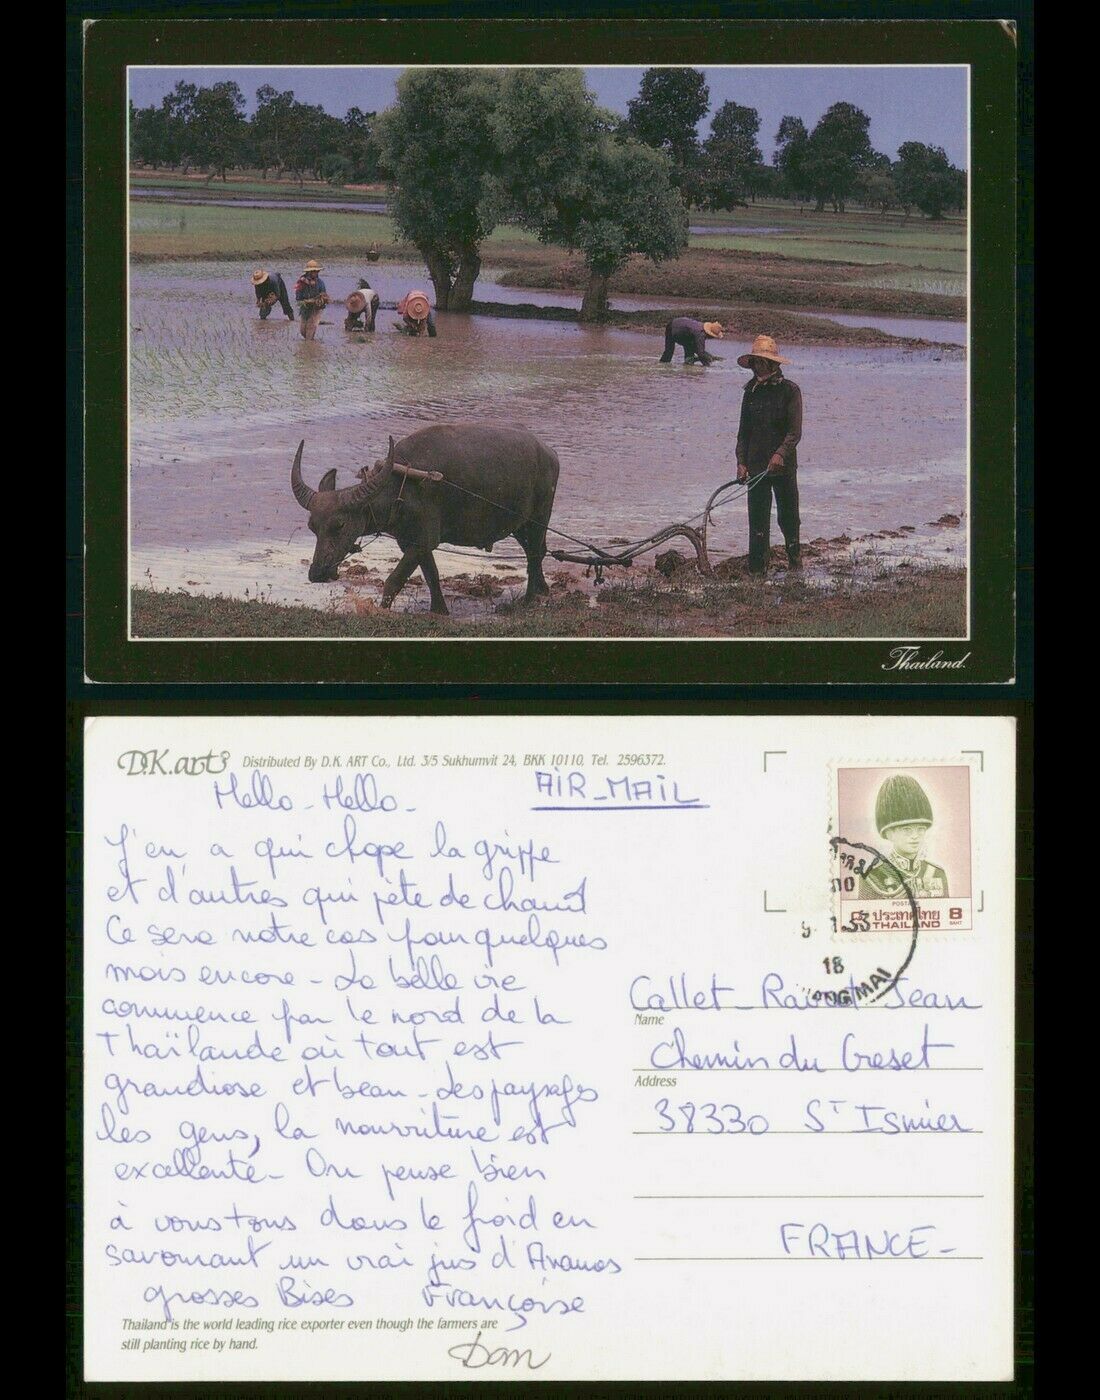 Thailand.
D.K.art's Distributed By D.K. ART Co., Ltd. 3/5 Sukhumvit 24, BKK 10110, Tel. 2596372.
Hello - Hello -
AIR-MAIL
J'en a qui chope la grippe
et d'autres qui pète de chaud
Ce sera notre cas pour quelques
mois encore - La belle vie
commence par le nord de la
Thaïlande où tout est
grandiose et beau - Les paysages
les gens, la nourriture est
excellente - On pense bien
à vous tous dans le froid en
savourant un vrai jus d'Ananas
grosses Bises Françoise
Dom
Thailand is the world leading rice exporter even though the farmers are
still planting rice by hand.
POSTAGE
ประเทศไทย 8
THAILAND BAHT
33
18
NG MAI
Callet Jean
Name
Chemin du Creset
Address
38330 St Ismier
FRANCE -